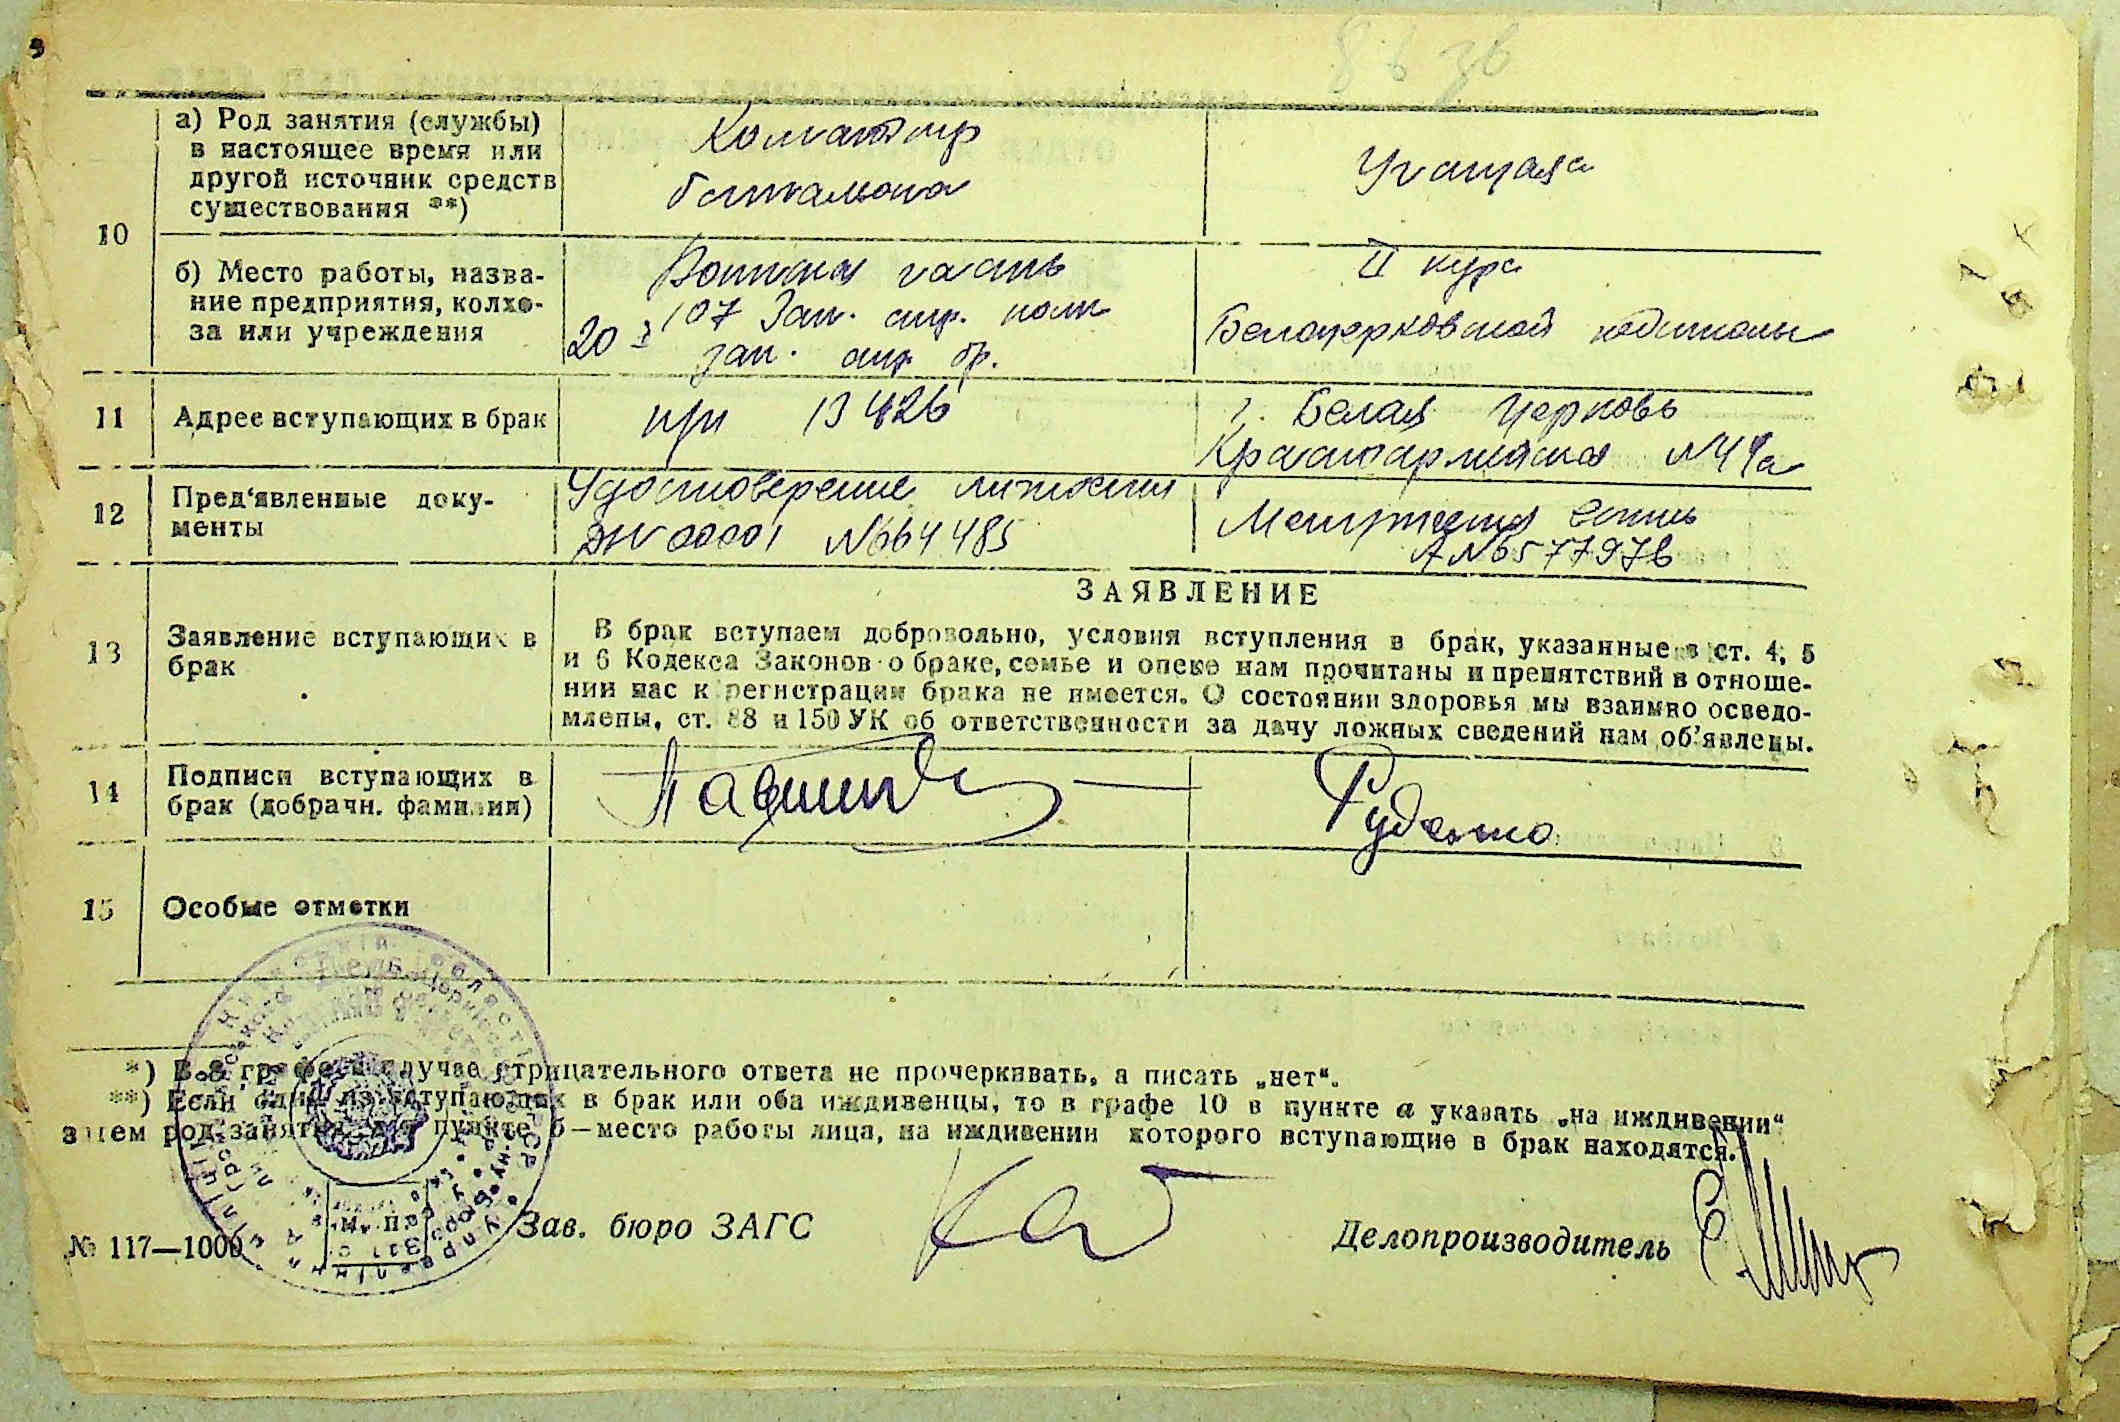 10
а) Род занятия (службы)
в настоящее время или
другой источник средств
существования **)
Командир
батальона
Учащаяся
б) Место работы, назва-
ние предприятия, колхо-
за или учреждения
Воинская часть
107 Зап. стр. полк
20й зап. стр. бр.
II курс
Белоцерковской педшколы
11
Адрес вступающих в брак
пп 13426
г. Белая Церковь
Красноармейская №44а
12
Пред'явленные доку-
менты
Удостоверение личности
№664485
Метрическая
А№6577976
13
Заявление вступающих в
брак
ЗАЯВЛЕНИЕ
В брак вступаем добровольно, условия вступления в брак, указанные в ст. 4, 5
и 6 Кодекса Законов о браке, семье и опеке нам прочитаны и препятствий в отноше-
нии нас к регистрации брака не имеется. О состоянии здоровья мы взаимно осведо-
млены, ст. 88 и 150 УК об ответственности за дачу ложных сведений нам об'явлены.
14
Подписи вступающих в
брак (добрачн. фамилии)
Руденко
15
Особые отметки
*) В 8 графе в случае отрицательного ответа не прочеркивать, а писать „нет“.
**) Если один из вступающих в брак или оба иждивенцы, то в графе 10 в пункте а указать „на иждивении“
з чем род занятия, а в пункте б—место работы лица, на иждивении которого вступающие в брак находятся.
№ 117—1000
М. П.
Зав. бюро ЗАГС
Делопроизводитель